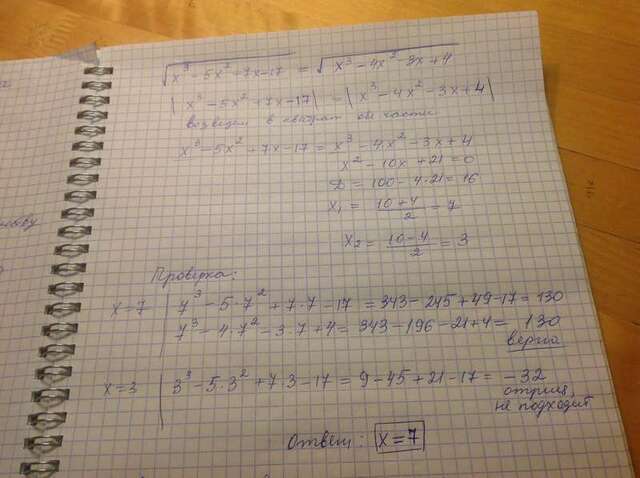 √(x³ - 5x² + 7x - 17) = √(x³ - 4x² - 3x + 4)
|x³ - 5x² + 7x - 17| = |x³ - 4x² - 3x + 4|
возведем в квадрат обе части
x³ - 5x² + 7x - 17 = x³ - 4x² - 3x + 4
x² - 10x + 21 = 0
D = 100 - 4·21 = 16
x₁ = (10+4)/2 = 7
x₂ = (10-4)/2 = 3
Проверка:
x=7 | 7³ - 5·7² + 7·7 - 17 = 343 - 245 + 49 - 17 = 130
7³ - 4·7² - 3·7 + 4 = 343 - 196 - 21 + 4 = 130
верно
x=3 | 3³ - 5·3² + 7·3 - 17 = 9 - 45 + 21 - 17 = -32
отриц,
не подходит
Ответ: x=7